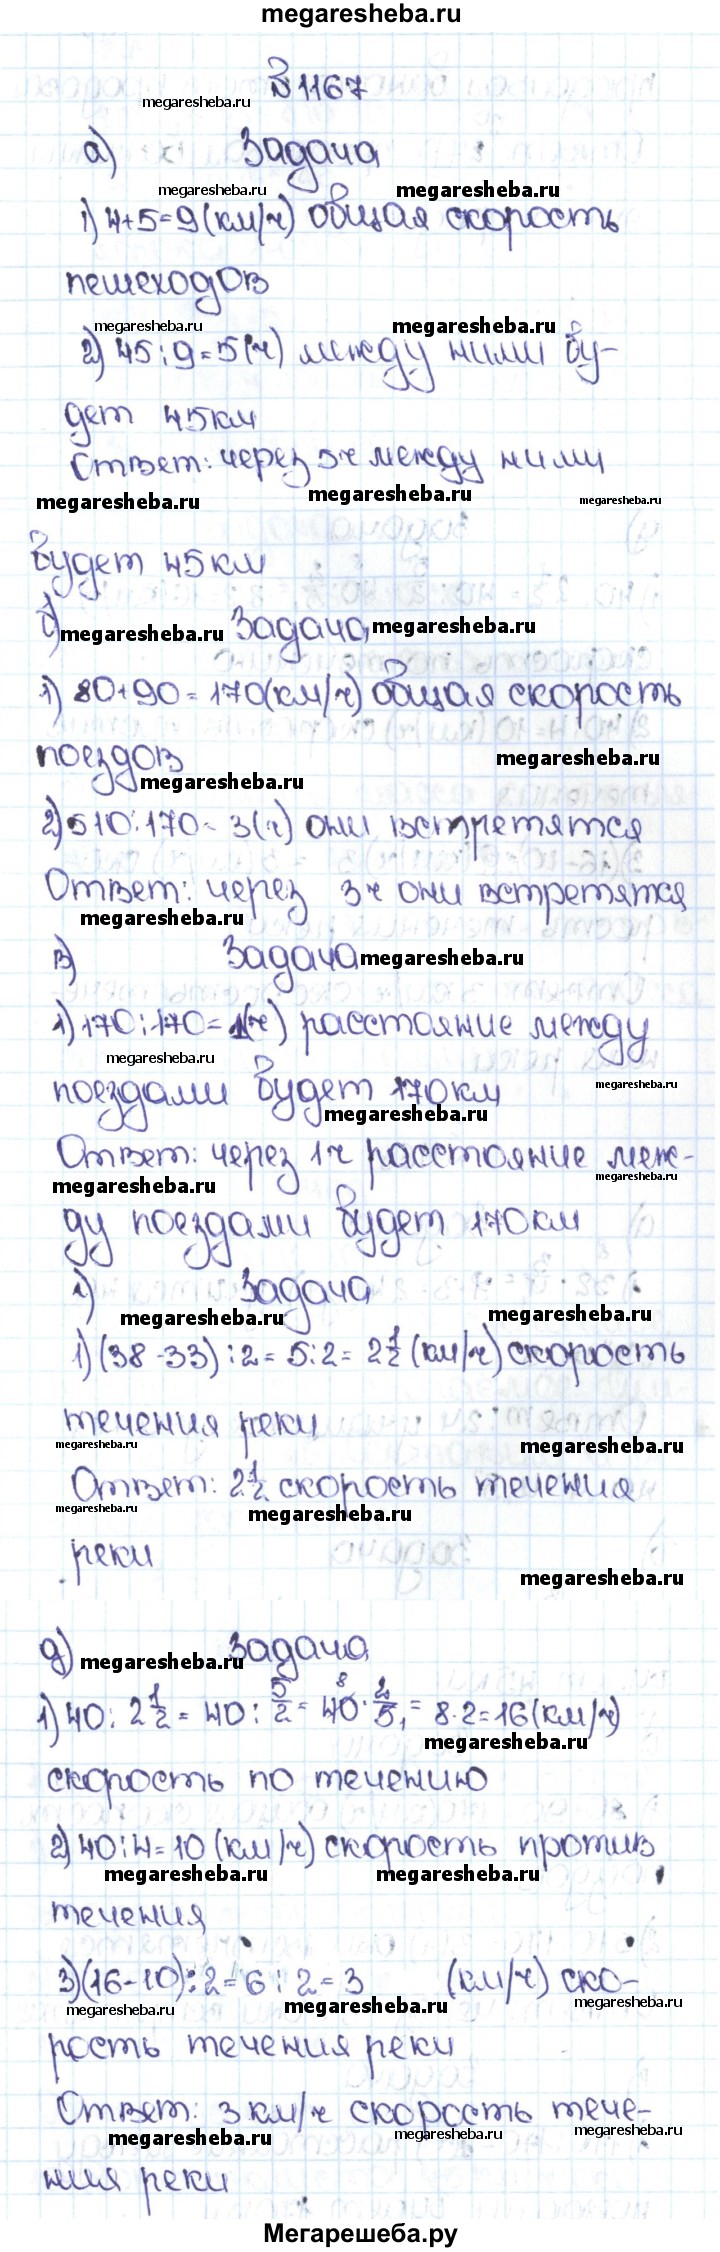 megaresheba.ru
№ 1167
megaresheba.ru
а) Задача
megaresheba.ru megaresheba.ru
1) 4+5=9(км/ч) общая скорость
пешеходов
megaresheba.ru megaresheba.ru
2) 45:9=5(ч) между ними бу-
дет 45км
Ответ: через 5ч между ними
megaresheba.ru megaresheba.ru megaresheba.ru
будет 45км
б) megaresheba.ru Задача megaresheba.ru
1) 80+90=170(км/ч) общая скорость
поездов megaresheba.ru
megaresheba.ru
2) 510:170=3(ч) они встретятся
Ответ: через 3ч они встретятся
megaresheba.ru
в) Задача megaresheba.ru
1) 170:170=1(ч) расстояние между
megaresheba.ru
поездами будет 170км megaresheba.ru
megaresheba.ru
Ответ: через 1ч расстояние меж-
megaresheba.ru megaresheba.ru
ду поездами будет 170км
г) Задача
megaresheba.ru megaresheba.ru
1) (38-33):2=5:2=2 1/2 (км/ч) скорость
течения реки
megaresheba.ru megaresheba.ru
Ответ: 2 1/2 скорость течения
megaresheba.ru megaresheba.ru
реки megaresheba.ru
д) megaresheba.ru Задача
1) 40:2 1/2=40:5/2=40 8·2/5 1=8·2=16(км/ч)
megaresheba.ru
скорость по течению
2) 40:4=10(км/ч) скорость против
megaresheba.ru megaresheba.ru
течения
3) (16-10):2=6:2=3 (км/ч) ско-
megaresheba.ru megaresheba.ru megaresheba.ru
рость течения реки
Ответ: 3км/ч скорость тече-
megaresheba.ru megaresheba.ru megaresheba.ru
ния реки
Мегарешеба.ру